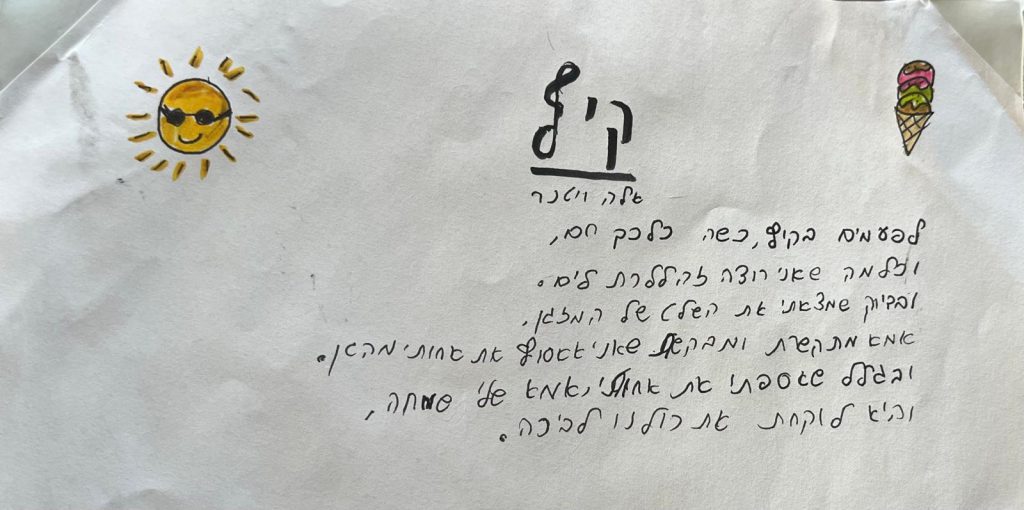 קיץ
אלה ויטנר
לפעמים בקיץ, כשה כלכך חם,
וכלמה שאני רוצה זה ללכת לים.
ובדיוק שמצאתי את השלט של המזגן,
אמא מתקשרת ומבקשת שאני אאסוף את אחותי מהגן.
ובגלל שאספתי את אחותי, אמא שלי שמחה,
והיא לוקחת את כולנו לבריכה.